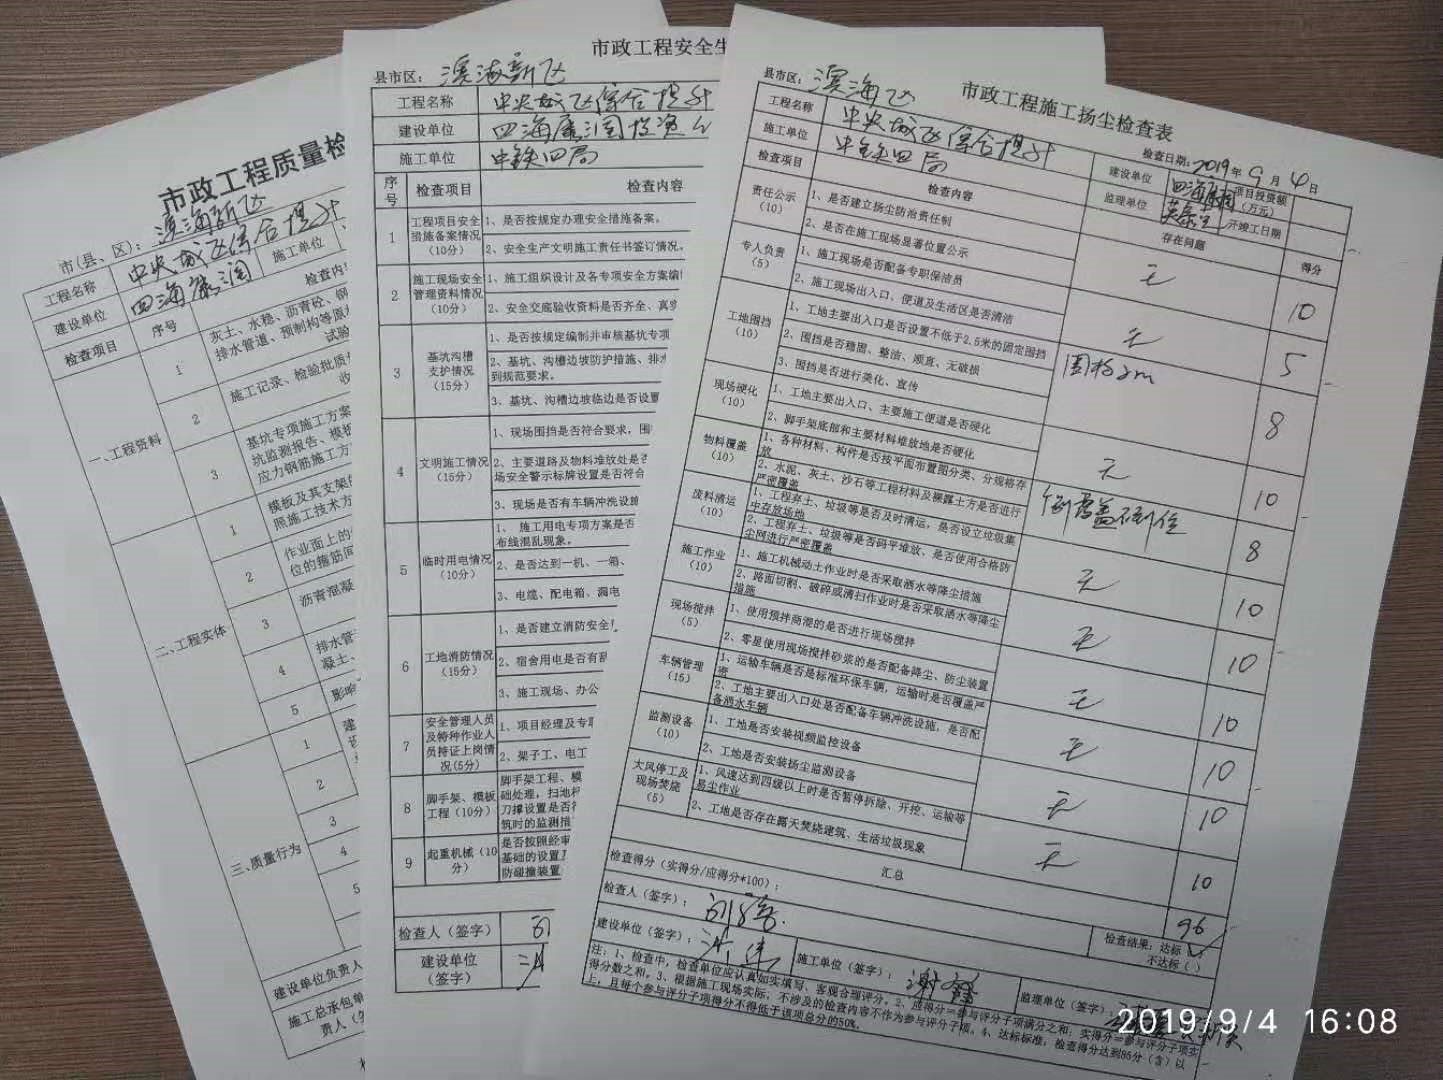 市政工程质量检
市(县、区)：滨海新区
工程名称 中央城区综合提升
建设单位 四海康润 施工单位
检查项目 序号 检查内
一、工程资料
1 灰土、水稳、沥青砼、钢
排水管道、预制构等原
试验
2 施工记录、检验批质
收
3 基坑专项施工方案
坑监测报告、模板
应力钢筋施工方
二、工程实体
1 模板及其支架
照施工技术方
2 作业面上的
位的箍筋间
3 沥青混凝
4 排水管
凝土、
5 影响
三、质量行为
1 建
设
2
3
4
5
建设单位负责人
施工总承包单
责人（
市政工程安全生
县市区：滨海新区
工程名称 中央城区综合提升
建设单位 四海康润投资公
施工单位 中铁四局
序号 检查项目 检查内容
1 工程项目安全措施备案情况（10分）
1、是否按规定办理安全措施备案。
2、安全生产文明施工责任书签订情况。
2 施工现场安全管理资料情况（10分）
1、施工组织设计及各专项安全方案编
2、安全交底验收资料是否齐全、真实
3 基坑沟槽支护情况（15分）
1、是否按规定编制并审核基坑专项
2、基坑、沟槽边坡防护措施、排水
到规范要求。
3、基坑、沟槽边坡临边是否设置
4 文明施工情况（15分）
1、现场围挡是否符合要求，围
2、主要道路及物料堆放处是否
场安全警示标牌设置是否符合
3、现场是否有车辆冲洗设施
5 临时用电情况（10分）
1、 施工用电专项方案是否
布线混乱现象。
2、是否达到一机、一箱、
3、电缆、配电箱、漏电
6 工地消防情况（15分）
1、是否建立消防安全
2、宿舍用电是否有
3、施工现场、办公
7 安全管理人员及特种作业人员持证上岗情况（5分）
1、项目经理及专
2、架子工、电工
8 脚手架、模板工程（10分）
脚手架工程、模
础处理，扫地杆
刀撑设置是否符
筑时的监测措
9 起重机械（10分）
是否按照经审
基础的设置
防碰撞装置
检查人（签字）
建设单位（签字）
市政工程施工扬尘检查表
县市区：滨海区 检查日期：2019年9月4日
工程名称 中央城区综合提升 建设单位 四海康润 项目投资额（万元）
施工单位 中铁四局 监理单位 英泰 开竣工日期
检查项目 检查内容 存在问题 得分
责任公示（10）
1、是否建立扬尘防治责任制
2、是否在施工现场显著位置公示
无 10
专人负责（5）
1、施工现场是否配备专职保洁员
2、施工现场出入口、便道及生活区是否清洁
无 5
工地围挡（10）
1、工地主要出入口是否设置不低于2.5米的固定围挡
2、围挡是否稳固、整洁、顺直、无破损
3、围挡是否进行美化、宣传
围挡2m 8
现场硬化（10）
1、工地主要出入口、主要施工便道是否硬化
2、脚手架底部和主要材料堆放地是否硬化
无 10
物料覆盖（10）
1、各种材料、构件是否按平面布置图分类、分规格存放
2、水泥、灰土、沙石等工程材料及裸露土方是否进行严密覆盖
覆盖不到位 8
废料清运（10）
1、工程弃土、垃圾等是否及时清运，是否设立垃圾集中存放场地
2、工程弃土、垃圾等是否码平堆放、是否使用合格防尘网进行严密覆盖
无 10
施工作业（10）
1、施工机械动土作业时是否采取洒水等降尘措施
2、路面切割、破碎或清扫作业时是否采取洒水等降尘措施
无 10
现场搅拌（5）
1、使用预拌商混的是否进行现场搅拌
2、零星使用现场搅拌砂浆的是否配备降尘、防尘装置
无 10
车辆管理（15）
1、运输车辆是否是标准环保车辆，运输时是否覆盖严密
2、工地主要出入口处是否配备车辆冲洗设施，是否配备洒水车辆
无 10
监测设备（10）
1、工地是否安装视频监控设备
2、工地是否安装扬尘监测设备
无 10
大风停工及现场焚烧（5）
1、风速达到四级以上时是否暂停拆除、开挖、运输等易尘作业
2、工地是否存在露天焚烧建筑、生活垃圾现象
无 10
汇总
检查得分（实得分/应得分*100）： 96
检查人（签字）： 检查结果：达标（✓）
不达标（ ）
建设单位（签字）： 施工单位（签字）：谢鑫 监理单位（签字）：
注：1、检查中，检查单位应认真如实填写、客观合理评分。2、应得分=参与评分子项满分之和；实得分=参与评分子项实得分数之和。3、根据施工现场实际，不涉及的检查内容不作为参与评分子项。4、达标标准：检查得分达到85分（含）以上，且每个参与评分子项得分不得低于该项总分的50%。
2019/9/4 16:08